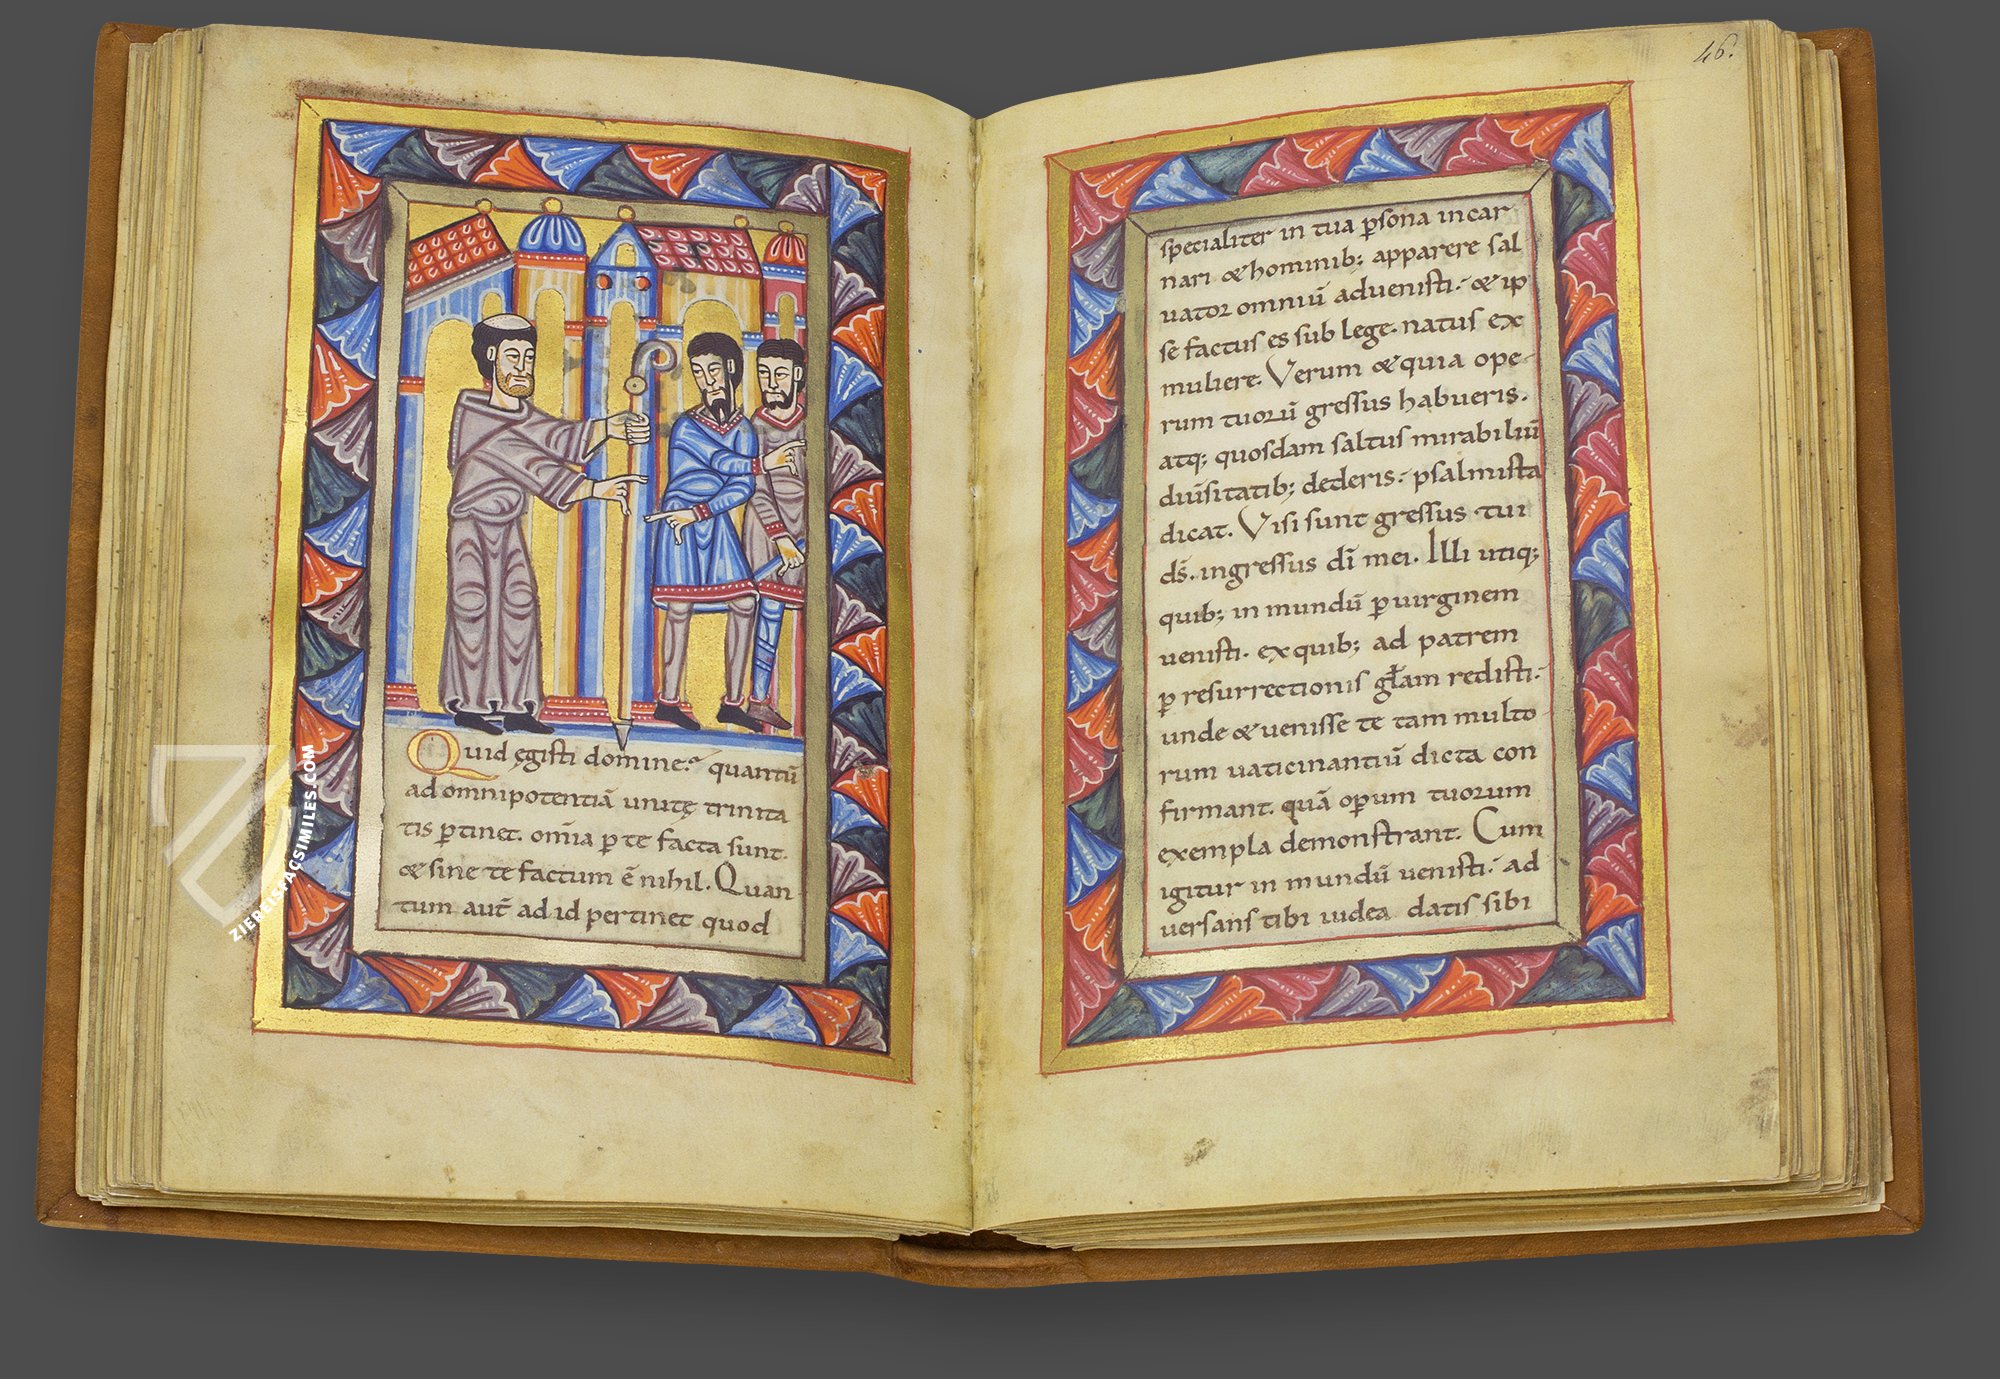 Quid ęgisti domine? quantū
ad omnipotentiā unitę trinita
tis ꝑtinet. om̄ia ꝑ te facta sunt.
& sine te factum ē nihil. Quan
tum aut̄ ad id pertinet quod
46.
specialiter in tua ꝑsona incar
nari & hominib; apparere sal
uator omniū aduenisti. & ip
se factus es sub lege. natus ex
muliere. Verum & quia ope
rum tuorū gressus habueris.
atq; quosdam saltus mirabiliū
diuisitatib; dederis. psalmista
dicat. Visi sunt gressus tui
ds̄. ingressus dī mei. Illi utiq;
quib; in mundū ꝑ uirginem
uenisti. ex quib; ad patrem
ꝑ resurrectionis głam redisti.
unde & uenisse te tam multo
rum uaticinantiū dicta con
firmant. quā oꝑum tuorum
exempla demonstrant. Cum
igitur in mundū uenisti. ad
uersans tibi iudea datis sibi
ZIEREIS FACSIMILES.COM